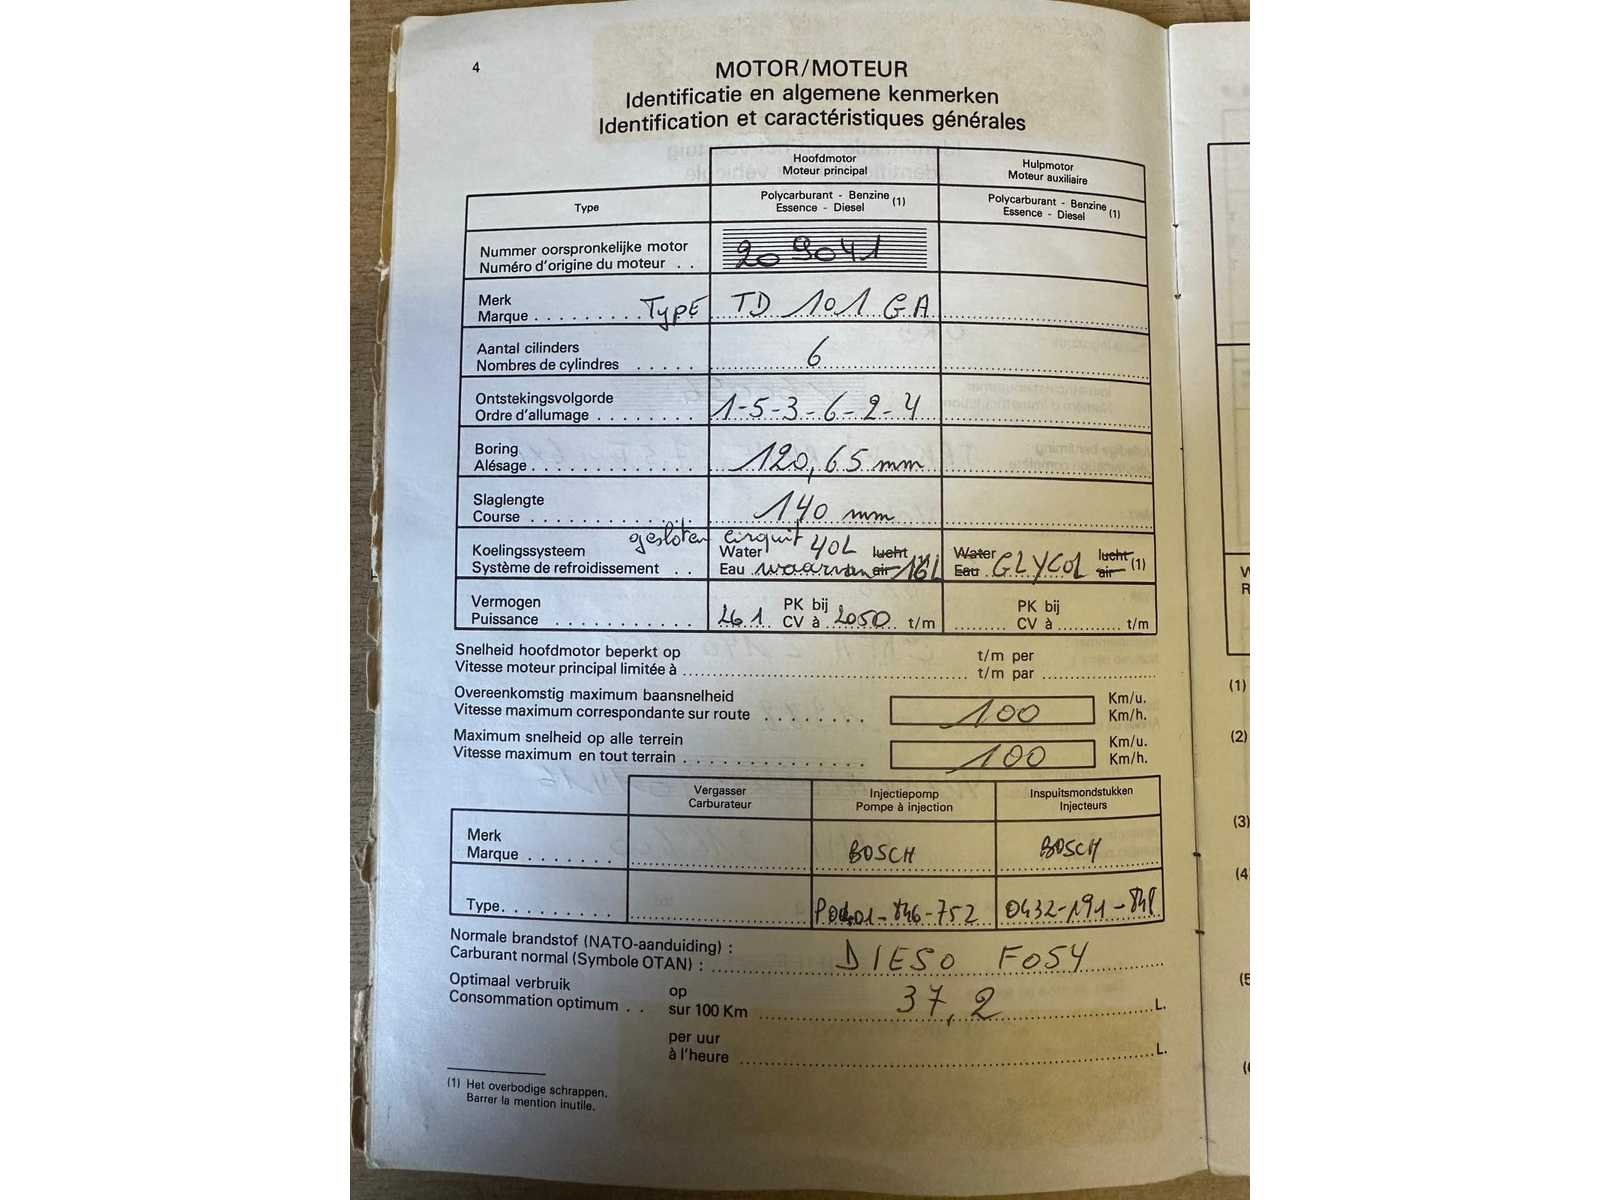 4
MOTOR/MOTEUR
Identificatie en algemene kenmerken
Identification et caractéristiques générales
Hoofdmotor
Moteur principal
Hulpmotor
Moteur auxiliaire
Type
Polycarburant - Benzine (1)
Essence - Diesel
Polycarburant - Benzine (1)
Essence - Diesel
Nummer oorspronkelijke motor
Numéro d'origine du moteur . . 209041
Merk
Marque . . . . . . . . . TYPE TD 101 GA
Aantal cilinders
Nombres de cylindres . . . . . 6
Ontstekingsvolgorde
Ordre d'allumage . . . . . . . . 1-5-3-6-2-4
Boring
Alésage . . . . . . . . . . . . . 120,65 mm
Slaglengte
Course . . . . . . . . . . . . . 140 mm
gesloten circuit 40L
Koelingssysteem Water lucht Water lucht
Système de refroidissement . . Eau waarvan air 16L Eau GLYCOL air (1)
Vermogen PK bij PK bij
Puissance . . . . . . . . . . . 261 CV à 2050 t/m CV à t/m
Snelheid hoofdmotor beperkt op t/m per
Vitesse moteur principal limitée à t/m par
Overeenkomstig maximum baansnelheid Km/u.
Vitesse maximum correspondante sur route . . . . . . . . 100 Km/h.
Maximum snelheid op alle terrein Km/u.
Vitesse maximum en tout terrain . . . . . . . . . . . . . . 100 Km/h.
Vergasser
Carburateur
Injectiepomp
Pompe à injection
Inspuitsmondstukken
Injecteurs
Merk
Marque . . . . . . . BOSCH BOSCH
Type. . . . . . . . . 0432-191-
Normale brandstof (NATO-aanduiding) :
Carburant normal (Symbole OTAN) : DIESO F054
Optimaal verbruik op
Consommation optimum . . sur 100 Km 37,2 L.
per uur
à l'heure L.
(1) Het overbodige schrappen.
Barrer la mention inutile.
(1)
(2)
(3)
(4
(5